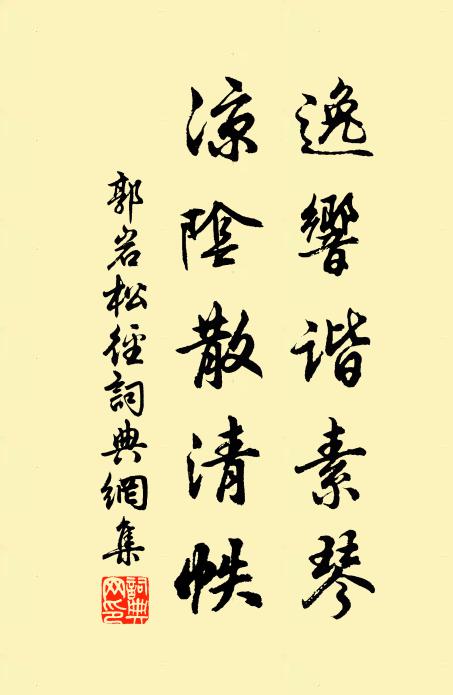 逸響谐素琴
涼陰散清帙
郭岩松徑詞典網集
詞典
网印